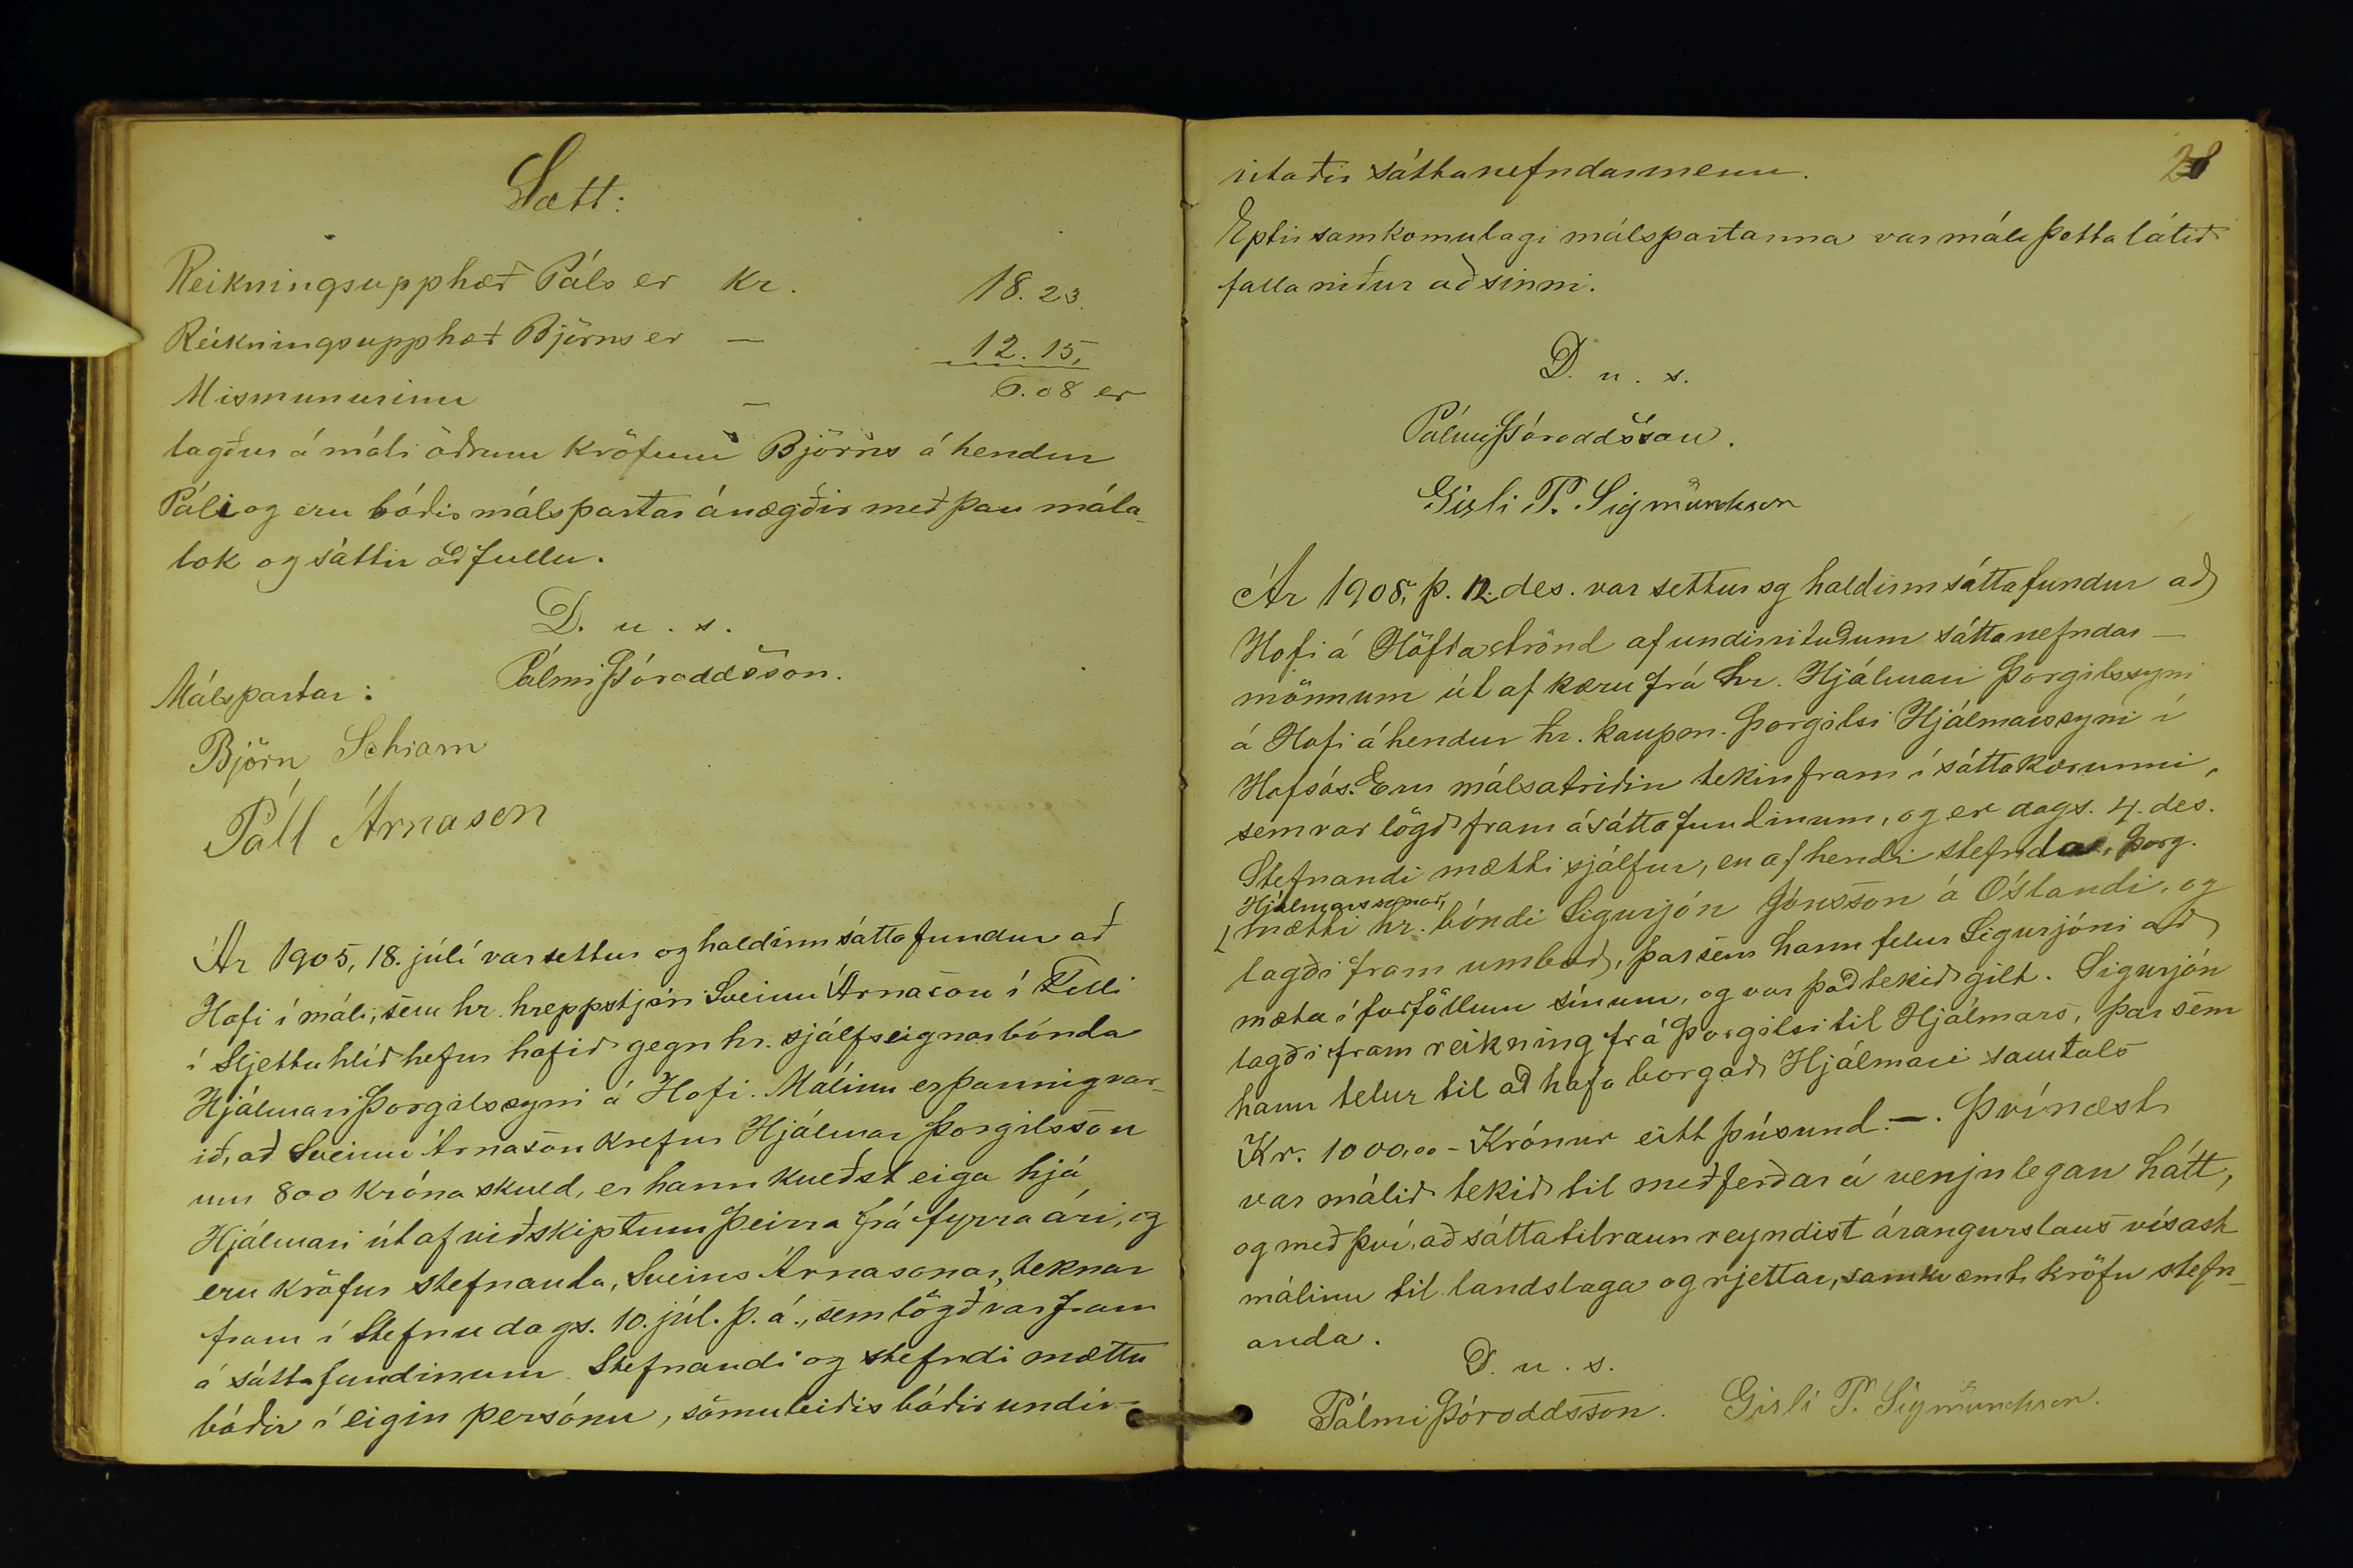 Sætt:
Reikningsupphæð Páls er Kr. 18.23.
Reikningsupphæð Björns er — 12.15,
Mismunurinn — 6.08 er
lagður á móti öðrum kröfum Björns á hendur
Páli og eru báðir málspartar ánægðir með þau mála-
lok og sáttir að fullu.
D. u. s.
Pálmi Þóroddsson.
Málspartar:
Björn Schram
Páll Árnason
Ár 1905, 18. júlí var settur og haldinn sáttafundur að
Hofi í máli, sem hr. hreppstjóri Sveinn Árnason í Felli
í Sljettuhlíð hefur hafið gegn hr. sjálfseignarbónda
Hjálmari Þorgilssyni á Hofi. Málinu er þannig var-
ið, að Sveinn Árnason krefur Hjálmar Þorgilsson
um 800 króna skuld, er hann kveðst eiga hjá
Hjálmari út af viðskiptum þeirra frá fyrra ári, og
eru kröfur stefnanda, Sveins Árnasonar, teknar
fram í Stefnu dags. 10. júl. þ. á., sem lögð var fram
á sáttafundinum. Stefnandi og stefndi mættu
báðir í eigin persónu, sömuleiðis báðir undir-
28
ritaðir sáttanefndarmenn.
Eptir samkomulagi málspartanna var máli þetta látið
falla niður að sinni.
D. u. s.
Pálmi Þóroddsson.
Gisli P. Sigmundsson
Ár 1908, þ. 12. des. var settur og haldinn sáttafundur að
Hofi á Höfðaströnd af undirrituðum sáttanefndar-
mönnum út af kæru frá hr. Hjálmari Þorgilssyni
á Hofi á hendur hr. kaupm. Þorgilsi Hjálmarssyni í
Hofsós. Eru málsatriðin tekin fram í sáttakærunni,
sem var lögð fram á sáttafundinum, og er dags. 4. des.
Stefnandi mætti sjálfur, en af hendi stefnda, Þorg.
Hjálmarssonar,
mætti hr. bóndi Sigurjón Jónsson á Óslandi, og
lagði fram umboð, þar sem hann felur Sigurjóni að
mæta í forföllum sínum, og var það tekið gilt. Sigurjón
lagði fram reikning frá Þorgilsi til Hjálmars, þar sem
hann telur til að hafa borgað Hjálmari samtals
Kr. 1000,00 - Krónur eitt þúsund. —. Þvínæst
var málið tekið til meðferðar á venjulegan hátt,
og með því, að sáttatilraun reyndist árangurslaus vísast
málinu til landslaga og rjettar, samkvæmt kröfu stefn-
anda.
D. u. s.
Pálmi Þóroddsson. Gisli P. Sigmundsson.